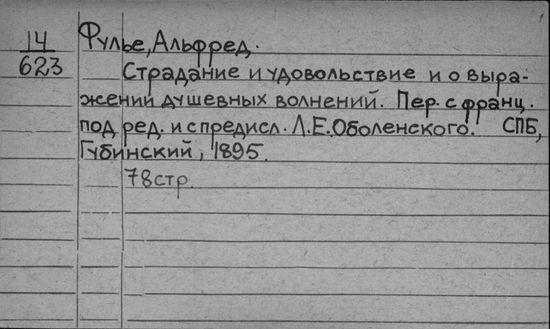 14 Фулье, Альфред.
623 Страдание и удовольствие и о выра-
жении душевных волнений. Пер. с франц.
под ред. и с предисл. Л.Е.Оболенского. СПБ,
Губинский, 1895.
78стр.